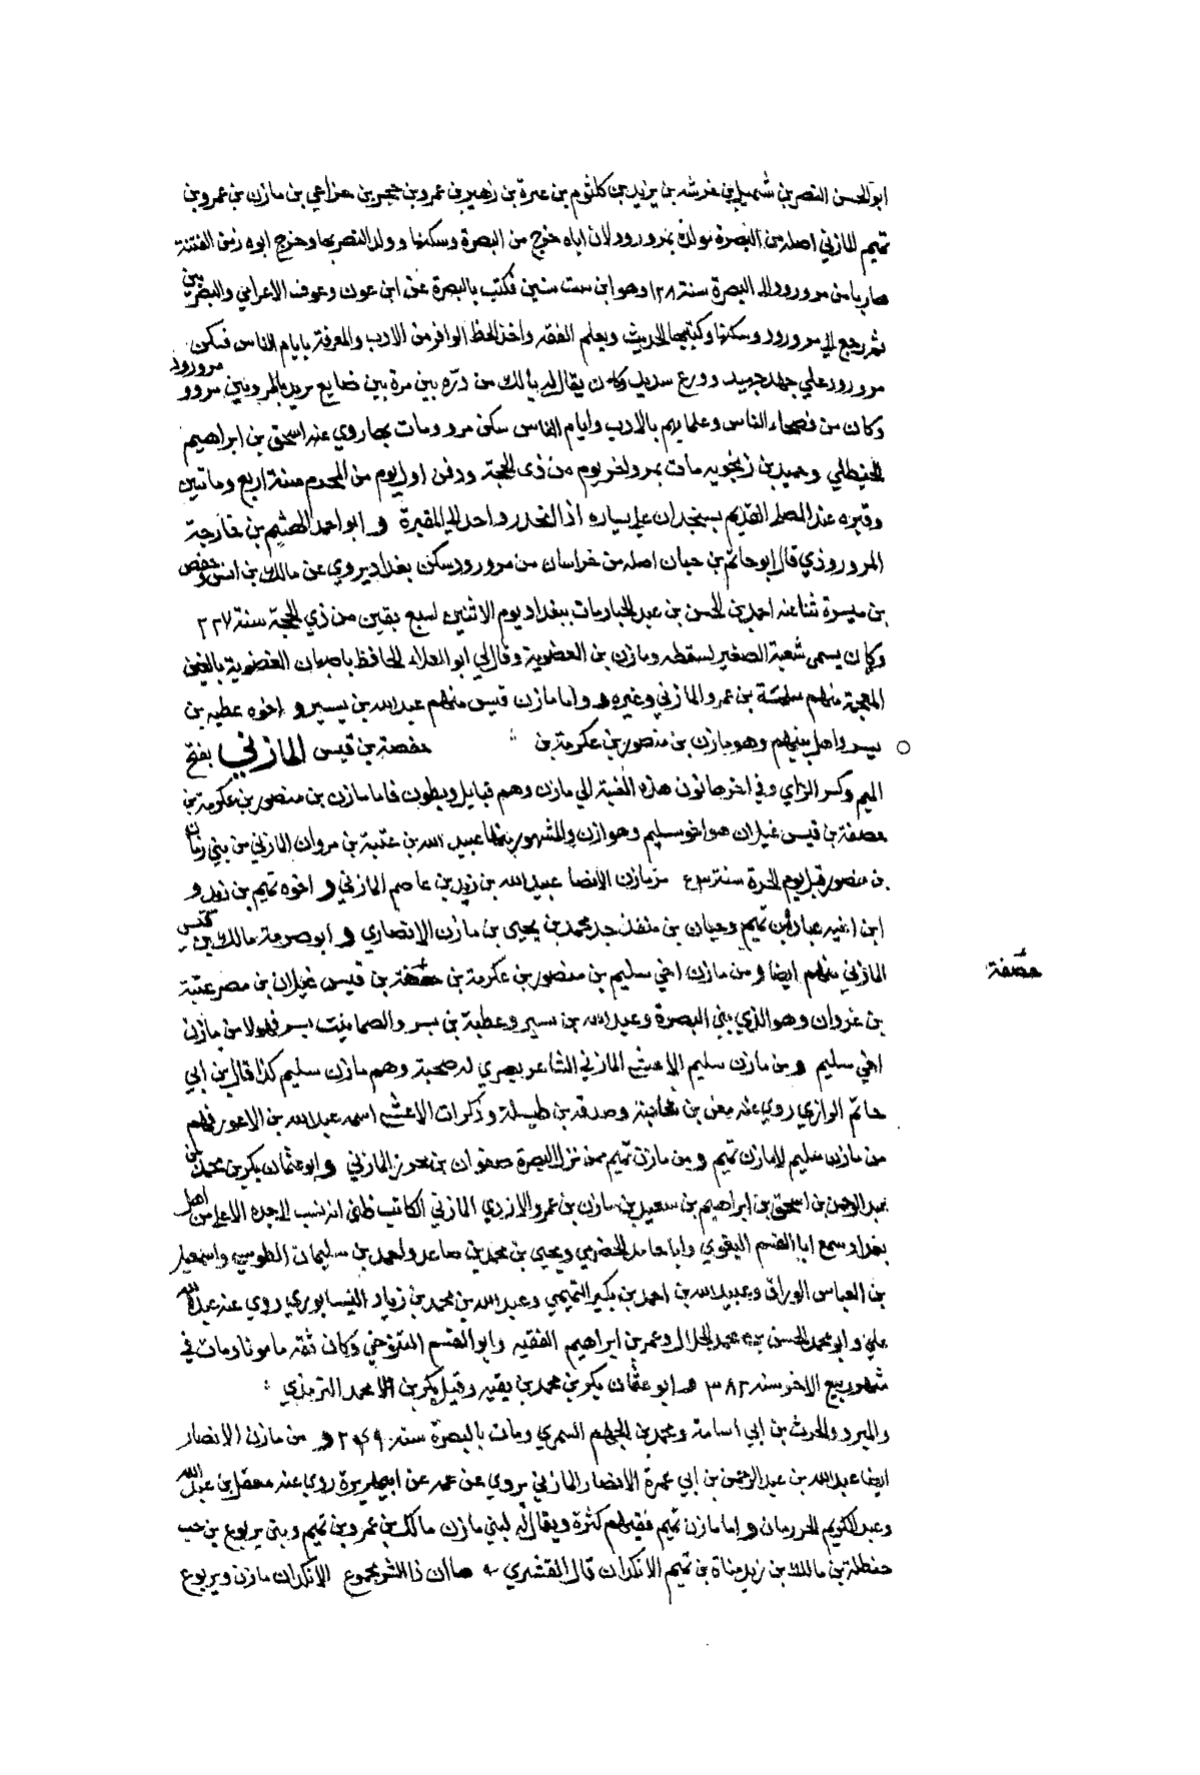 ابو الحسن النضر بن شميل بن خرشه بن يزيد بن كلثوم بن عبرة بن زهير بن عمرو بن حجر بن خزاعي بن مازن بن عمرو بن
تميم المازني اصله من البصرة مولده بمرورود لان اباه خرج من البصرة وسكنها وولد النضر بها وخرج ابوه زمن الفتنة
هاربا من مرورود الى البصرة سنة ١٢٨ وهو ابن ست سنين فكتب بالبصرة عن ابن عون وعوف الاعرابي والبصريين
ثم رجع الى مرورود وسكنها وكتب بها الحديث وتعلم الفقه واخذ الحظ الوافر من الادب والمعرفة بايام الناس فسكن
مرورود على جهد جهيد وورع شديد وكان يقال له يا لك من درّه بين مرة بين ضايع يريد بالمروين مرو و مرورود
وكان من فصحاء الناس وعلمايهم بالادب وايام الناس سكن مرو ومات بها روى عنه اسحق بن ابراهيم
الحنظلي وحميد بن زنجويه مات بمرو اخر يوم من ذى الحجة ودفن اول يوم من المحرم سنة اربع وماتين
وقبره عند المصلى القديم على يساره اذا انحدر واحد الى المقبرة و ابو احمد الهيثم بن خارجة
المروروذي قال ابو حاتم بن حبان اصله من خراسان من مرورود سكن بغداد يروي عن مالك بن انس وحفص
بن ميسرة ثنا عنه احمد بن الحسن بن عبد الجبار مات ببغداد يوم الاثنين لسبع بقين من ذي الحجة سنة ٢٢٧
وكان يسمى شعبة الصغير لسقطه ومازن بن الغضوبة وقال لي ابو العلاء الحافظ باصبهان الغضوبة بالغين
المعجمة منهم سلمة بن عمرو المازني وغيره و واما مازن قيس منهم عبد الله بن يسير و اخوه عطيه بن
يسر واهل بيتهم وهو مازن بن منصور بن عكرمة بن حفصة بن قيس المازني بفتح
الميم وكسر الزاي وفي اخرها نون هذه النسبة الى مازن وهم قبايل وبطون فاما مازن بن منصور بن عكرمة بن
حصفة بن قيس غيلان هو اخو سليم وهوازن والمشهور منها عبيد الله بن عتبة بن مروان المازني من بني زمان
بن منصور قتل يوم الحرة سنة ٦٣ من مازن الانصار عبيد الله بن زيد بن عاصم المازني و اخوه تميم بن زيد و
ابن اخيه عباد بن تميم وحبان بن منقذ جد محمد بن يحيى بن مازن الانصاري و ابو صرمة مالك بن قيس
المازني منهم ايضا و من مازن اخي سليم بن منصور بن عكرمة بن حفصة بن قيس غيلان بن مضر عتبة
حصفة
بن غزوان وهو الذي بني البصرة وعبد الله بن يسير وعطية بن بسر والصما بنت بسر فهولا من مازن
اخي سليم و من مازن سليم الاعشى المازني الشاعر بصري له صحبة وهم مازن سليم كذا قال بن ابي
حاتم الرازي روى عنه معن بن ثعلبة وصدقه بن طيسلة وذكر ان الاعشى اسمه عبد الله بن الاعور فهم
من مازن سليم لا مازن تميم و من مازن تميم ممن نزل البصرة صفوان بن محرز المازني و ابو عثمان بكر بن محمد بن
عبد الرحمن بن اسحق بن ابراهيم بن سعيد بن مازن بن عمرو الازدي المازني الكاتب ظني انه نسب الى جده الاعلى من اهل
بغداد سمع ابا القسم البغوي وابا حامد الحضرمي ويحيى بن محمد بن صاعد واحمد بن سليمان الطوسي واسمعيل
بن العباس الوراق وعبيد الله بن احمد بن بكير التميمي وعبد الله بن محمد بن زياد النيسابوري روى عنه عبد الله
علي و ابو محمد الحسن بن محمد الخلال وعمر بن ابراهيم الفقيه وابو القسم التنوخي وكان ثقة مامونا ومات في
شهر ربيع الاخر سنه ٣٨٢ و ابو عثمان بكر بن محمد بن بقيه وقيل بكر بن محمد الترمذي
والمبرد والحرث بن ابي اسامة ومحمد بن الجهم السمري ومات بالبصرة سنه ٢٤٩ و من مازن الانصار
ايضا عبد الله بن عبد الرحمن بن ابي عمرة الانصار المازني يروي عن عمه عن ابي هريرة روى عنه معقل بن عبد الله
وعبد الكريم الحرر مان و اما مازن تميم ففيهم كثرة ويقال لبني مازن مالك بن عمرو بن تميم وبني يربوع بن
حنظلة بن مالك بن زيد مناة بن تميم الانكران قال القشيري ها ان ذا الشر مجموع الانكران مازن ويربوع